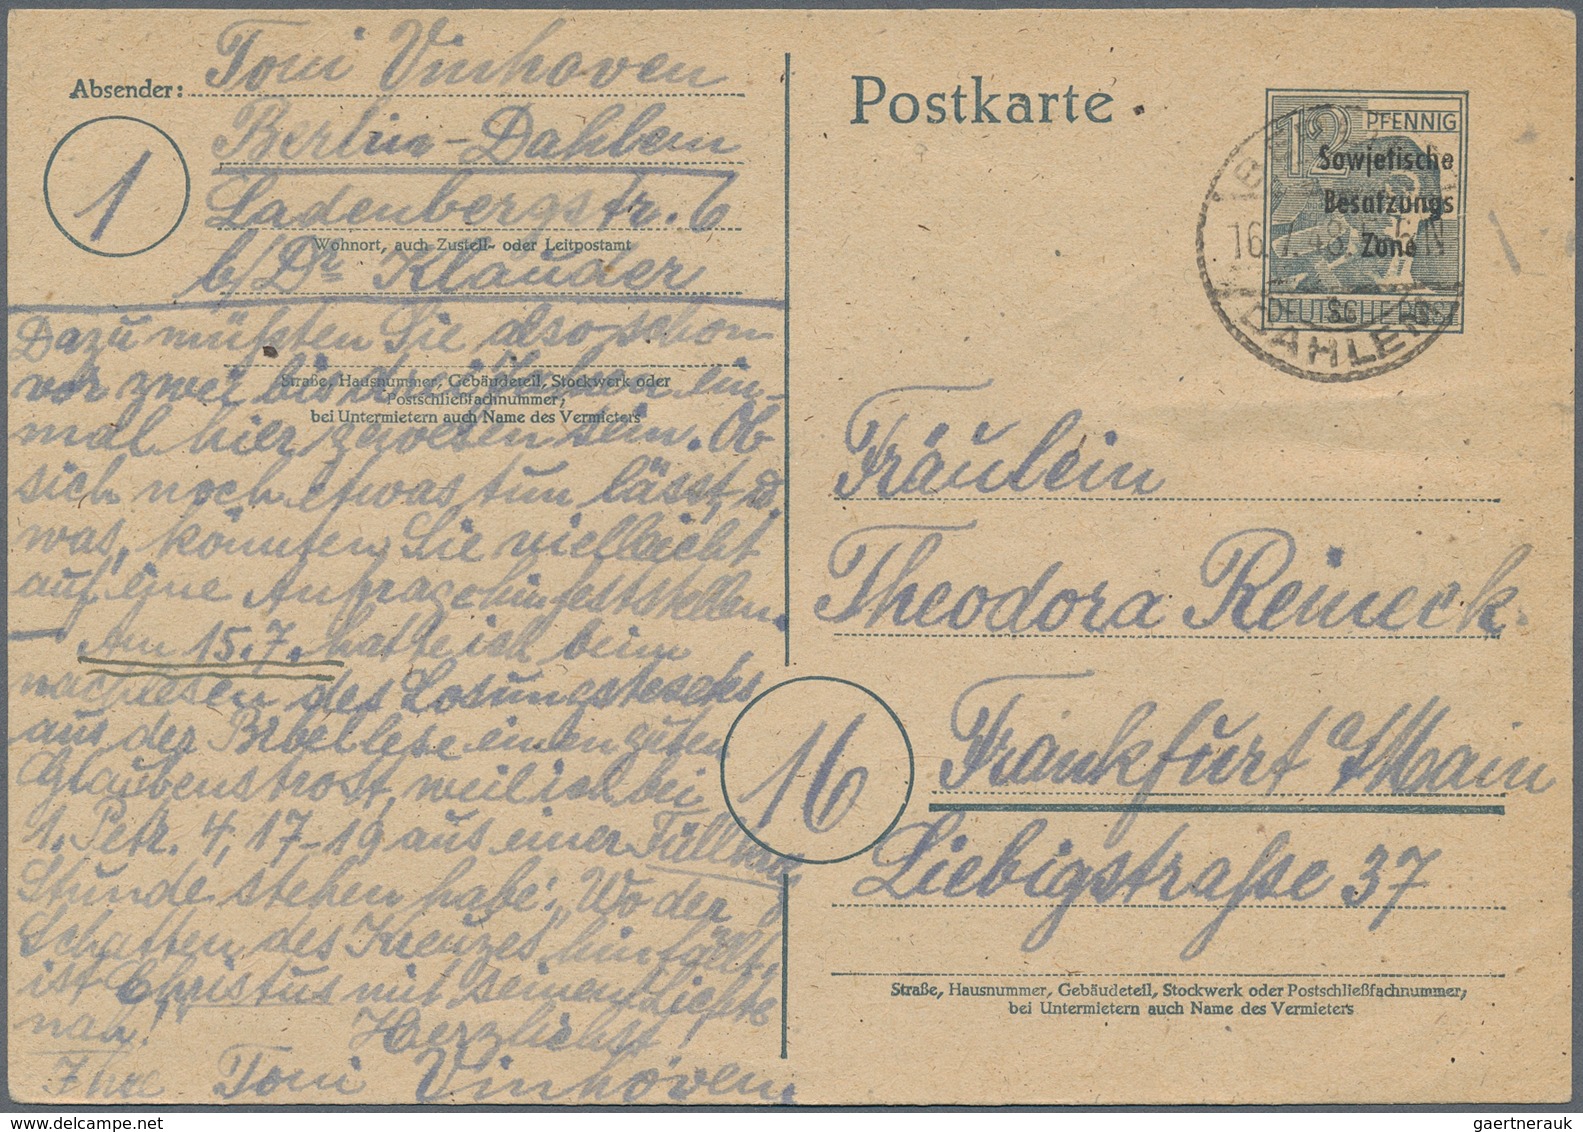 Absender: Toni Vinhoven
Berlin-Dahlem
1
Ladenbergstr. 6
Wohnort, auch Zustell- oder Leitpostamt
b/Dr Klauder
Dazu müßten Sie also schon
vor zwei bis drei ein-
Straße, Hausnummer, Gebäudeteil, Stockwerk oder
Postschließfachnummer;
bei Untermietern auch Name des Vermieters
mal hier gewesen sein. Ob
sich noch etwas tun lässt, u.
was, könnten Sie vielleicht
auf eine Anfrage hin feststellen.
Am 15.7. hatte ich beim
nachlesen des Losungstextes
aus der Bibellese einen guten
Glaubenstrost, weil ich bei
1. Petr. 4, 17-19 aus einer
Stunde stehen habe: „Wo der
Schatten des Kreuzes hinfällt,
ist Christus mit seinem Lichte
nah!
Herzlichst
Ihre Toni Vinhoven
Postkarte
12 PFENNIG
Sowjetische
Besatzungs
Zone
DEUTSCHE POST
BERLIN
16.7.48
DAHLEM
Fräulein
Theodora Reineck.
16
Frankfurt/Main
Liebigstraße 37
Straße, Hausnummer, Gebäudeteil, Stockwerk oder Postschließfachnummer;
bei Untermietern auch Name des Vermieters
gaertnerauk @ delcampe.net